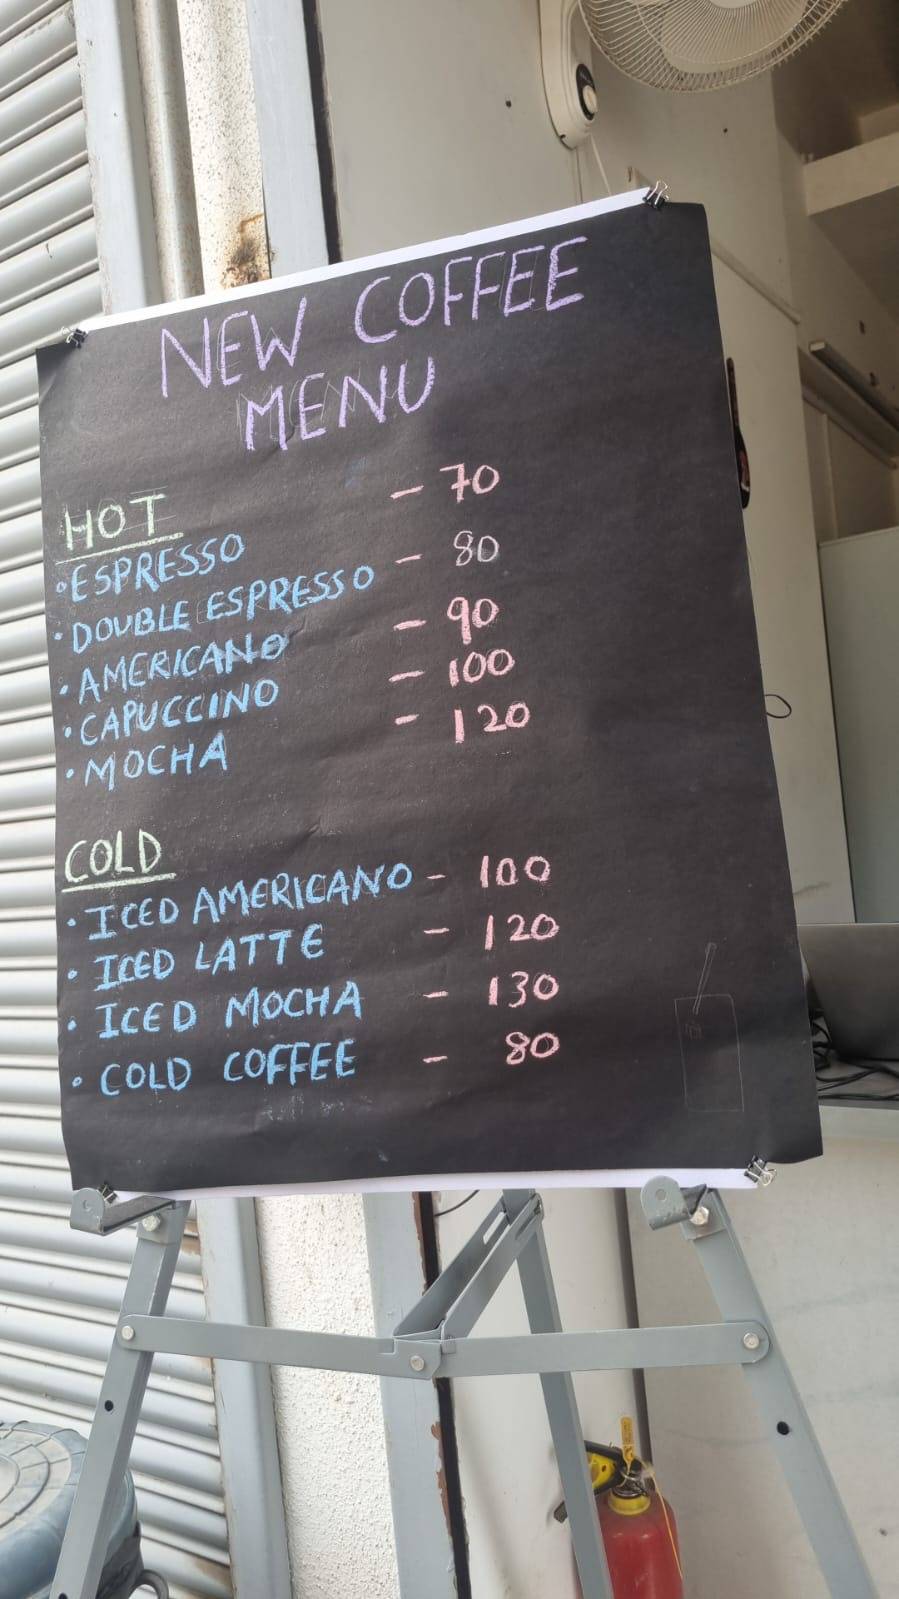 NEW COFFEE
MENU
HOT
• ESPRESSO - 70
• DOUBLE ESPRESSO - 80
• AMERICANO - 90
• CAPUCCINO - 100
• MOCHA - 120
COLD
• ICED AMERICANO - 100
• ICED LATTE - 120
• ICED MOCHA - 130
• COLD COFFEE - 80